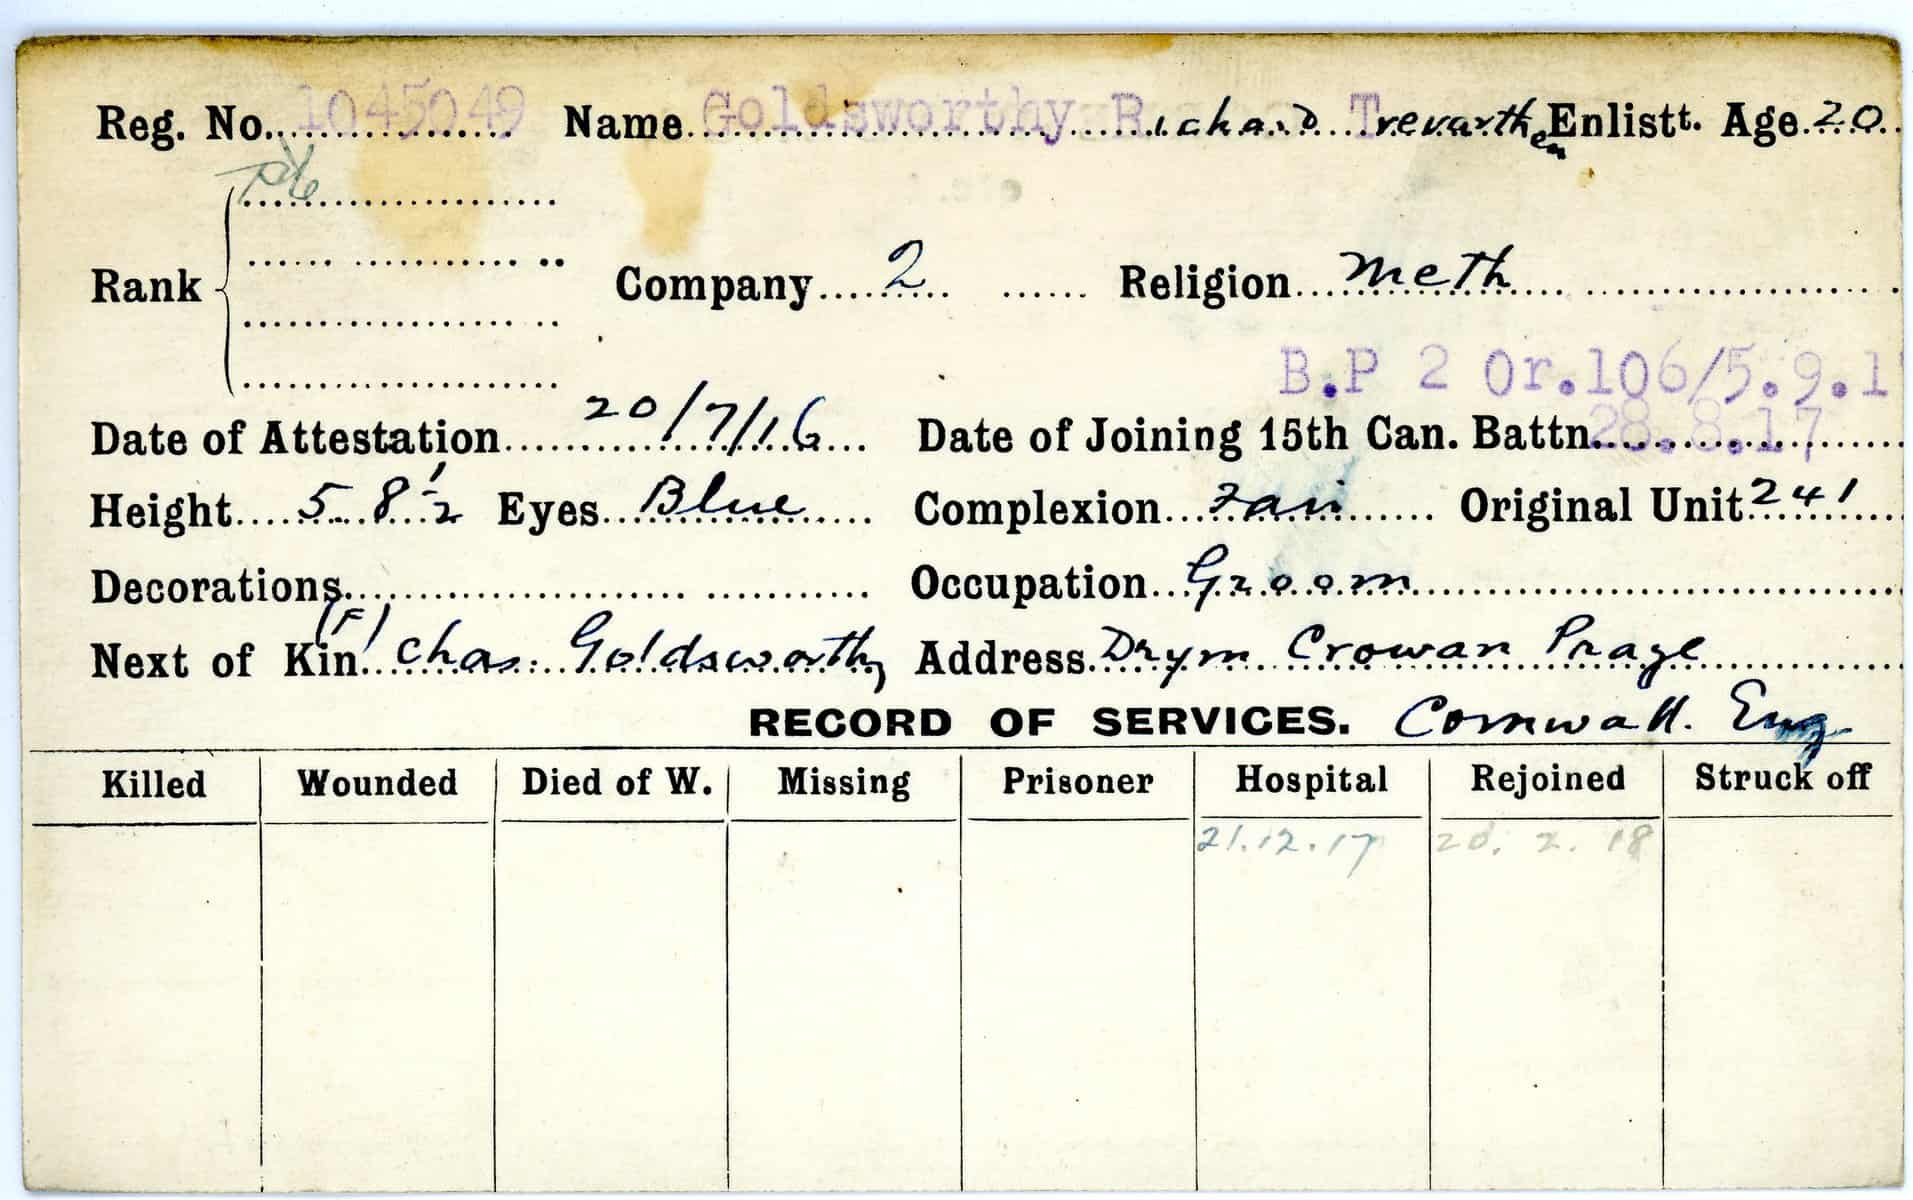 Reg. No. 1045049 Name Goldsworthy Richard Trevarthen Enlistt. Age 20
Pte
Rank Company 2 Religion Meth
B.P 2 Or.106/5.9.1
Date of Attestation 20/7/16 Date of Joining 15th Can. Battn. 28.8.17
Height 5 8 1/2 Eyes Blue Complexion Fair Original Unit 241
Decorations Occupation Groom
Next of Kin (F) Chas. Goldsworthy Address Drym Crowan Praze
RECORD OF SERVICES. Cornwall. Eng
Killed Wounded Died of W. Missing Prisoner Hospital Rejoined Struck off
21.12.17 20. 2. 18